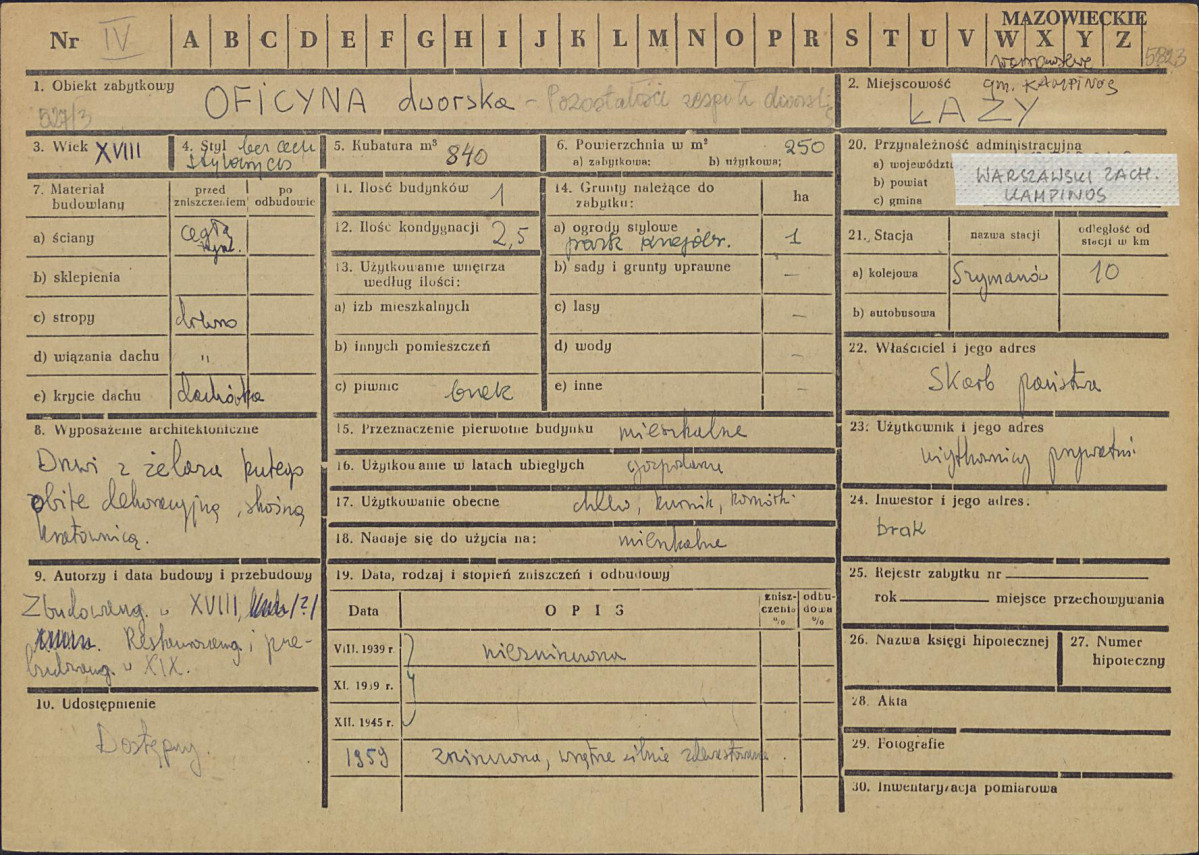 MAZOWIECKIE
Nr IV A B C D E F G H I J K L M N O P R S T U V W X Y Z
warszawskie
5823
1. Obiekt zabytkowy
OFICYNA dworska - Pozostałości zespołu dworsk.
527/3
2. Miejscowość gm. KAMPINOS
ŁAZY
3. Wiek XVIII
4. Styl bez cech
stylowych
5. Kubatura m³ 840
6. Powierzchnia w m²
a) zabytkowa: b) użytkowa; 250
7. Materiał budowlany
przed zniszczeniem
po odbudowie
a) ściany cegła
b) sklepienia
c) stropy drewno
d) wiązania dachu "
e) krycie dachu dachówka
8. Wyposażenie architektoniczne
Drzwi z żelaza kutego
obite dekoracyjną, skośną
kratownicą.
9. Autorzy i data budowy i przebudowy
Zbudowany w XVIII,
Restaurowany i prze-
budowany w XIX.
10. Udostępnienie
Dostępny.
11. Ilość budynków 1
12. Ilość kondygnacji 2,5
13. Użytkowanie wnętrza
według ilości:
a) izb mieszkalnych
b) innych pomieszczeń
c) piwnic brak
14. Grunty należące do
zabytku:
ha
a) ogrody stylowe
park krajobr. 1
b) sady i grunty uprawne –
c) lasy –
d) wody –
e) inne –
15. Przeznaczenie pierwotne budynku mieszkalne
16. Użytkowanie w latach ubiegłych gospodarcze
17. Użytkowanie obecne chlew, kurnik, komórki
18. Nadaje się do użycia na: mieszkalne
19. Data, rodzaj i stopień zniszczeń i odbudowy
Data
OPIS
zniszczenia %
odbudowa %
VIII. 1939 r. niezniszczona
XI. 1939 r.
XII. 1945 r.
1959 zniszczona, wnętrze silnie zdewastowane.
20. Przynależność administracyjna
a) województwo
b) powiat
c) gmina
WARSZAWSKI ZACH.
KAMPINOS
21. Stacja
nazwa stacji
odległość od
stacji w km
a) kolejowa Szymanów 10
b) autobusowa
22. Właściciel i jego adres
Skarb państwa
23. Użytkownik i jego adres
użytkownicy prywatni
24. Inwestor i jego adres:
brak
25. Rejestr zabytku nr
rok miejsce przechowywania
26. Nazwa księgi hipotecznej
27. Numer
hipoteczny
28. Akta
29. Fotografie
30. Inwentaryzacja pomiarowa